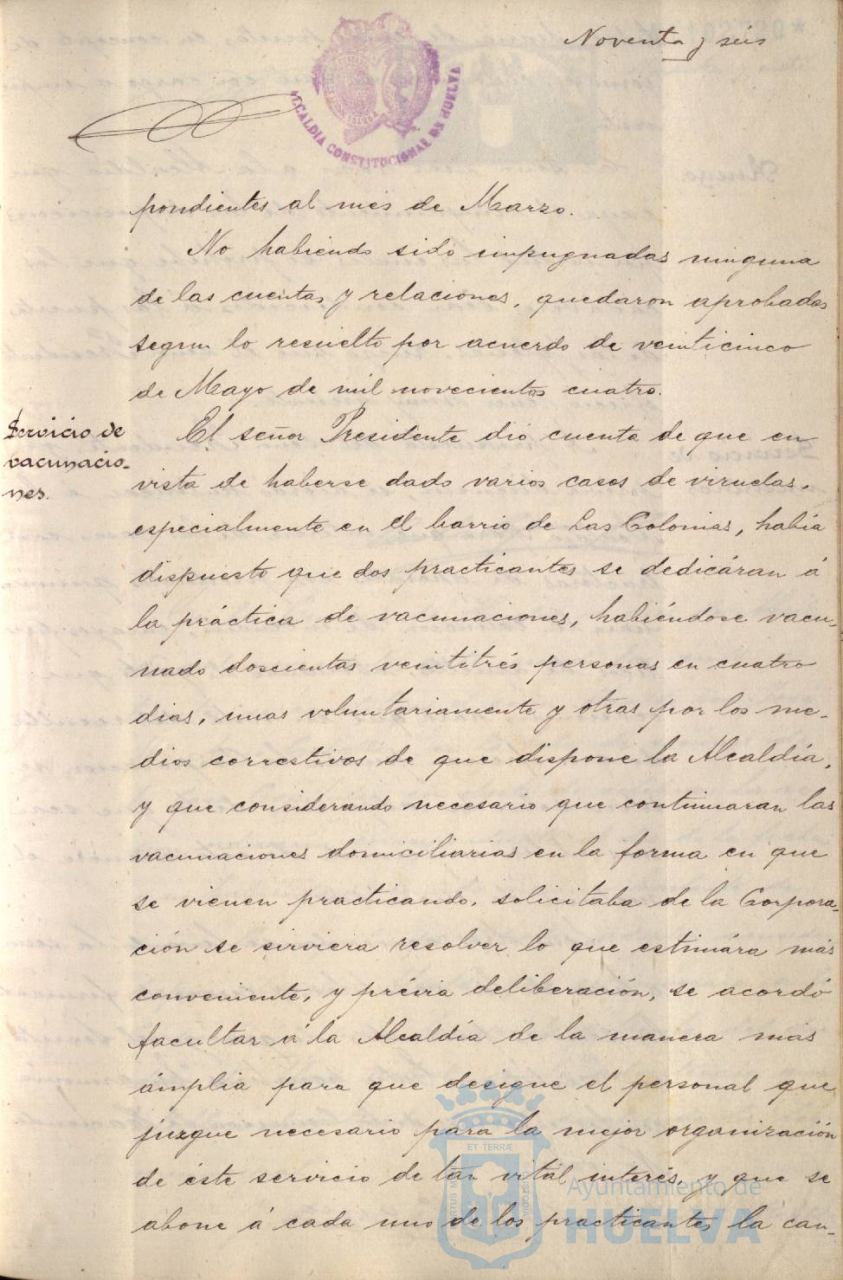 Noventa y seis
ALCALDIA CONSTITUCIONAL DE HUELVA
pondientes al mes de Marzo.
No habiendo sido impugnadas ninguna
de las cuentas y relaciones, quedaron aprobadas
segun lo resuelto por acuerdo de veinticinco
de Mayo de mil novecientos cuatro.
Servicio de
vacunacio-
nes.
El señor Presidente dió cuenta de que en
vista de haberse dado varios casos de viruelas,
especialmente en el barrio de Las Colonias, había
dispuesto que dos practicantes se dedicáran á
la práctica de vacunaciones, habiéndose vacu-
nado doscientas veintitrés personas en cuatro
dias, unas voluntariamente y otras por los me-
dios correctivos de que dispone la Alcaldía,
y que considerando necesario que continuaran las
vacunaciones domiciliarias en la forma en que
se vienen practicando, solicitaba de la Corpora-
ción se sirviera resolver lo que estimára más
conveniente, y prévia deliberación, se acordó
facultar á la Alcaldía de la manera más
ámplia para que designe el personal que
juzgue necesario para la mejor organización
de éste servicio de tan vital interés, y que se
abone á cada uno de los practicantes la can-
ET TERRÆ
Ayuntamiento de
HUELVA